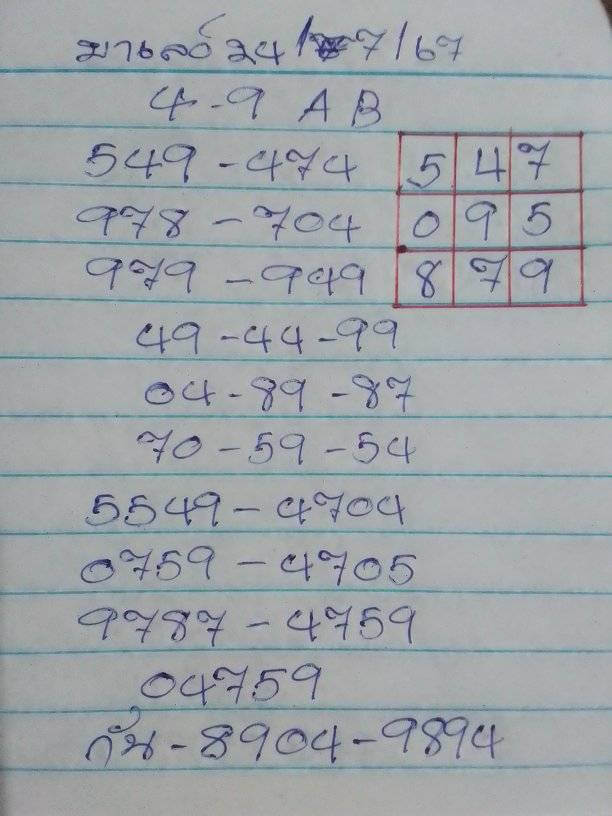 มาเลย์ 24/7/67
4-9 A B
549-474
978-704
979-949
5 4 7
0 9 5
8 7 9
49-44-99
04-89-87
70-59-54
5549-4704
0759-4705
9787-4759
04759
กัน-8904-9894